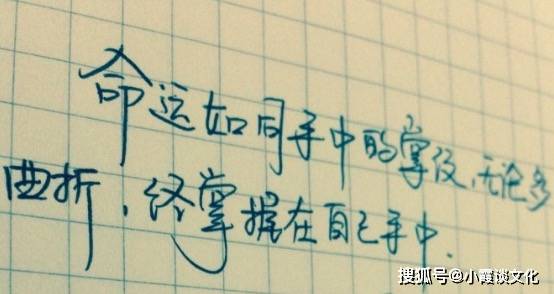 命运如同手中的掌纹,无论多
曲折,终掌握在自己手中.
搜狐号@小霞谈文化